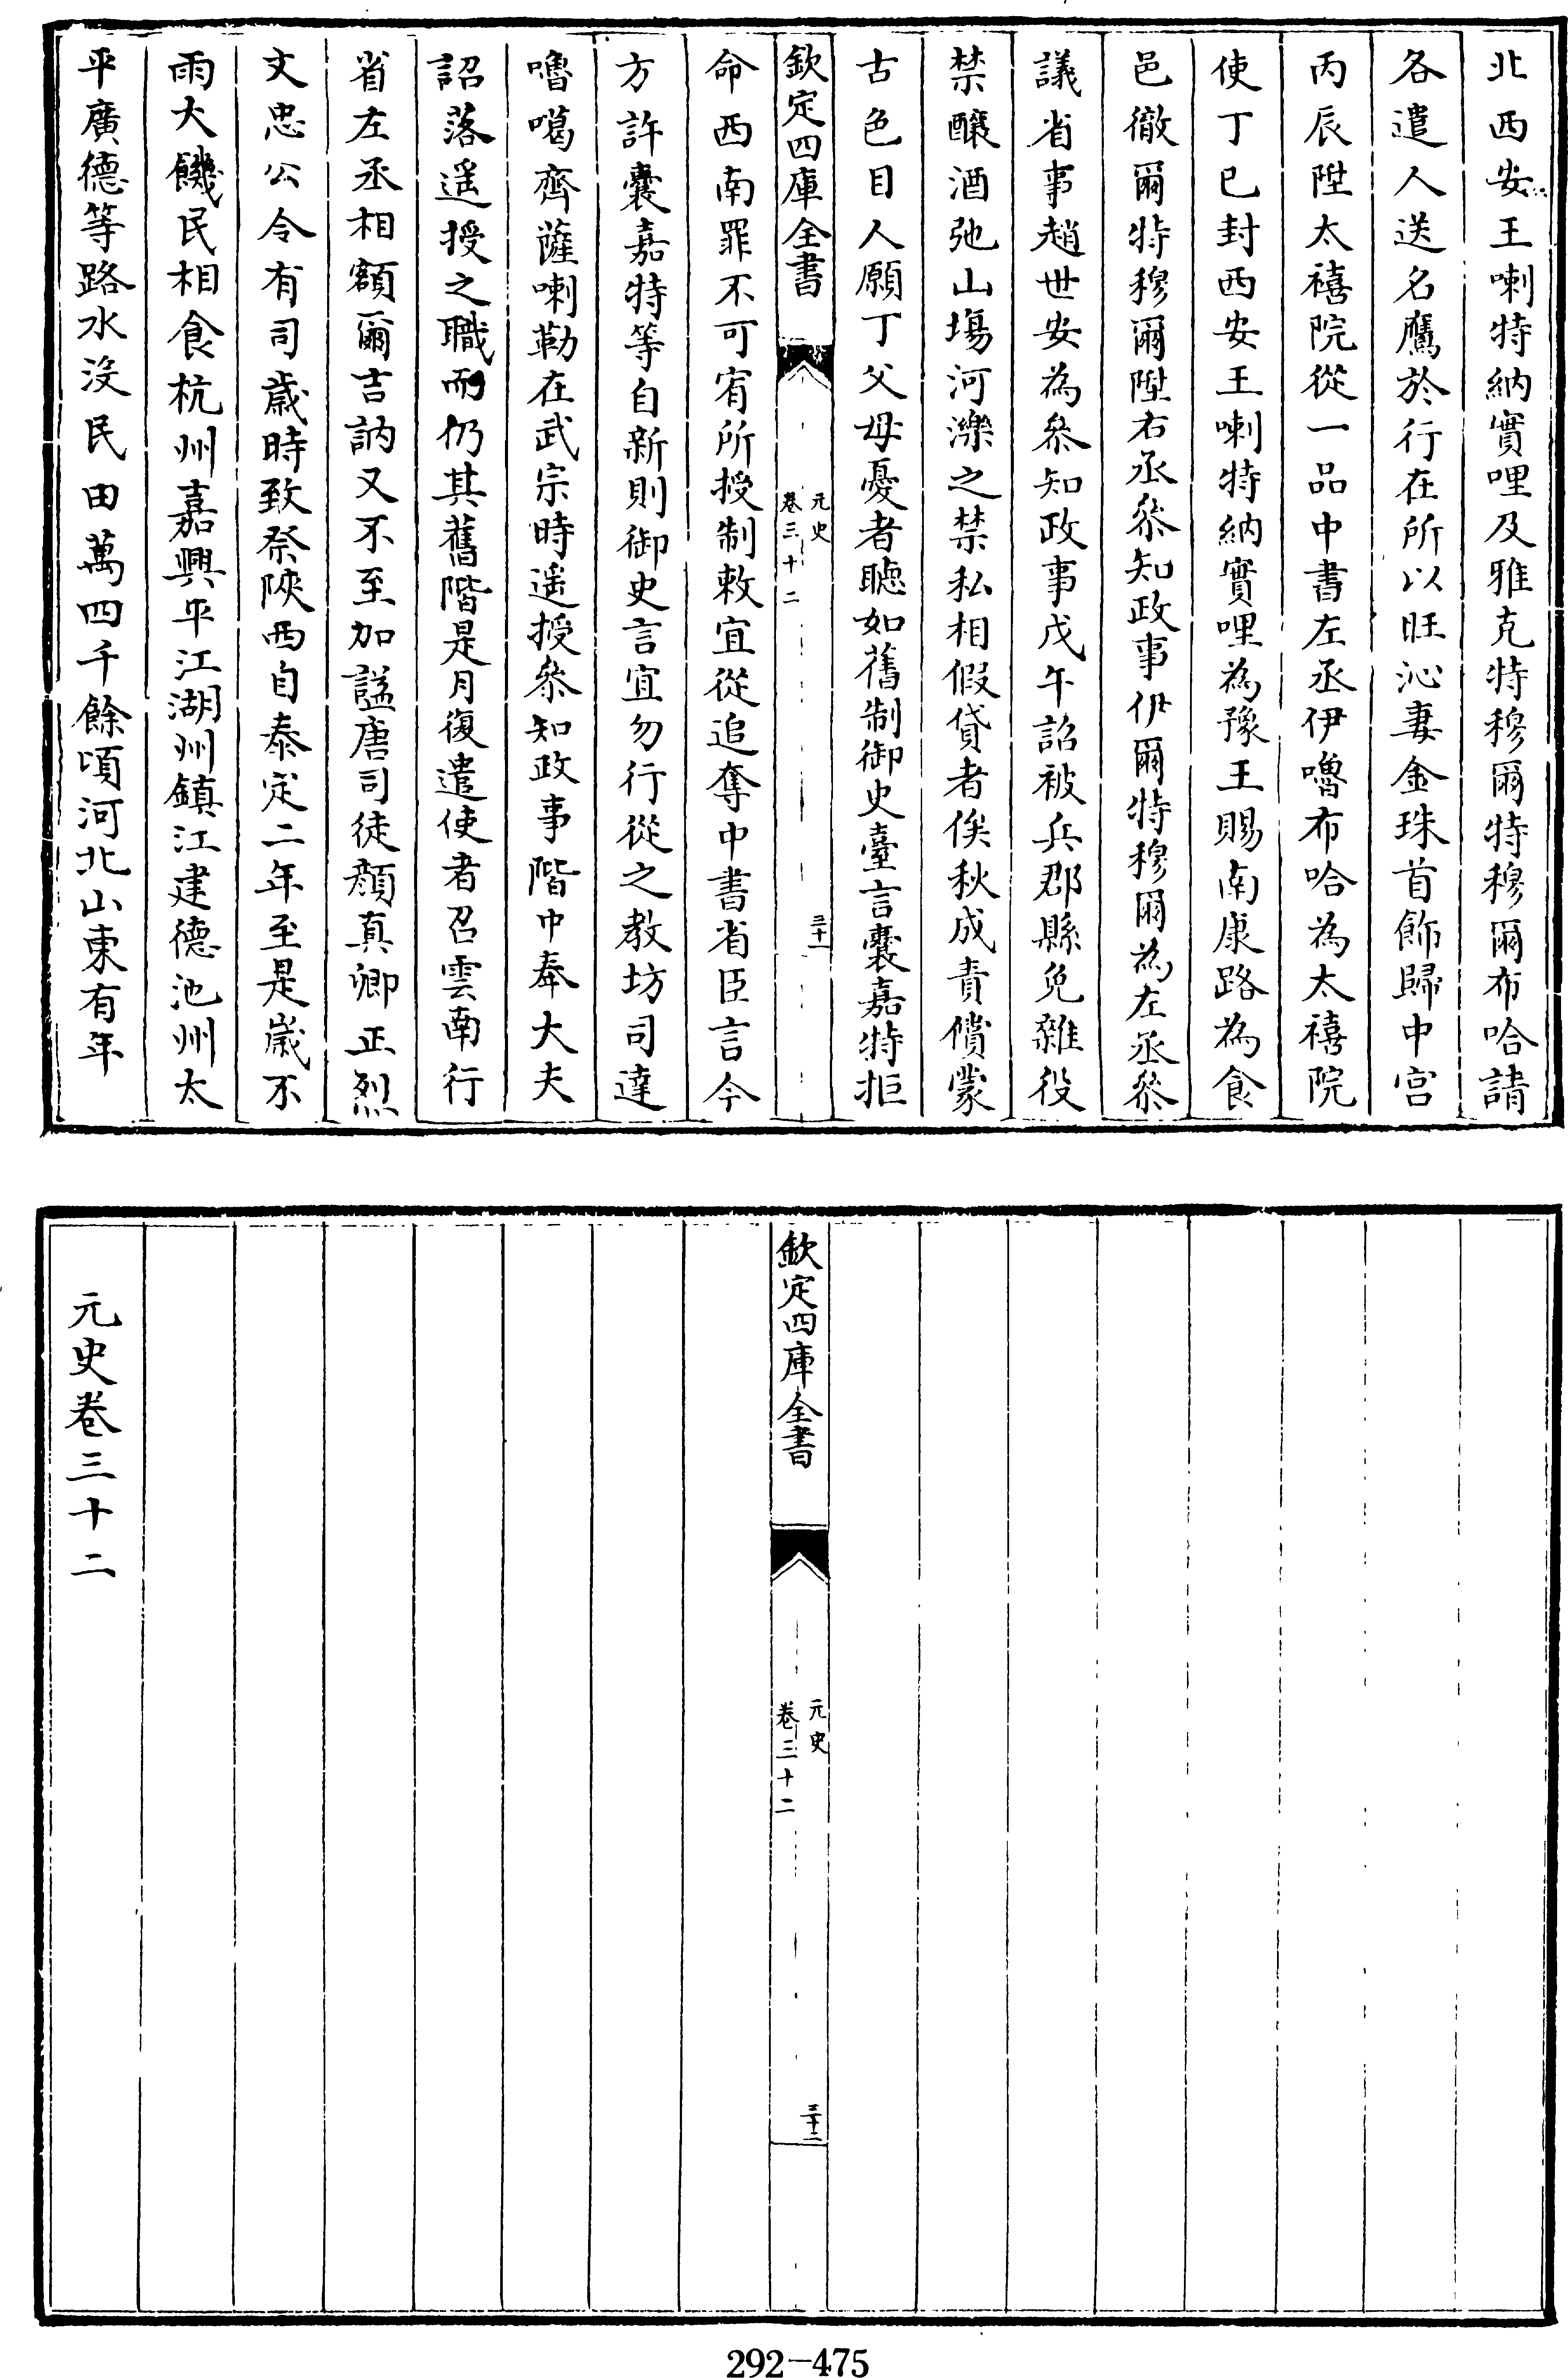 北西安王喇特納實哩及雅克特穆爾特穆爾布哈請
各遣人送名鷹於行在所以旺沁妻金珠首飾歸中宫
丙辰陞太禧院從一品中書左丞伊嚕布哈為太禧院
使丁巳封西安王喇特納實哩為豫王賜南康路為食
邑徹爾特穆爾陞右丞叅知政事伊爾特穆爾為左丞叅
議省事趙世安為叅知政事戊午詔被兵郡縣免雜役
禁釀酒弛山塲河濼之禁私相假貸者俟秋成責償蒙
古色目人願丁父母憂者聽如舊制御史臺言囊嘉特拒
欽定四庫全書
元史
卷三十二
三十一
命西南罪不可宥所授制敕宜從追奪中書省臣言今
方許囊嘉特等自新則御史言宜勿行從之教坊司達
嚕噶齊薩喇勒在武宗時遥授叅知政事階中奉大夫
詔落遥授之職而仍其舊階是月復遣使者召雲南行
省左丞相額爾吉訥又不至加諡唐司徒顔真卿正烈
文忠公令有司歲時致祭陜西自泰定二年至是歲不
雨大饑民相食杭州嘉興平江湖州鎮江建德池州太
平廣德等路水没民田萬四千餘頃河北山東有年
欽定四庫全書
元史
卷三十二
三十二
元史卷三十二
292-475